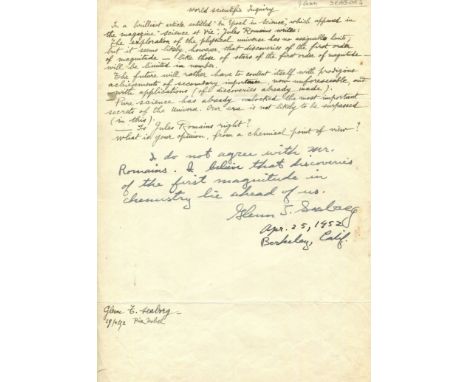 Glenn SEABORG
World scientific Inquiry
In a brilliant article entitled "An Epoch in Science", which appeared in
the magazine "Science et Vie", Jules Romains writes:
"The exploration of the physical universe has no assignable limit,
but it seems likely, however, that discoveries of the first order
of magnitude – like those of stars of the first order of magnitude –
will be limited in number.
The future will rather have to content itself with prodigious
achievement of secondary importance now unforeseeable and
with applications (of discoveries already made).
Pure science has already unlocked the most important
secrets of the universe. Our era is not likely to be surpassed
(in this).
– Is Jules Romains right?
What is your opinion, from a chemical point of view?
I do not agree with Mr.
Romains. I believe that discoveries
of the first magnitude in
chemistry lie ahead of us.
Glenn T. Seaborg
Apr. 25, 1952
Berkeley, Calif.
Glenn T. Seaborg
Prix Nobel